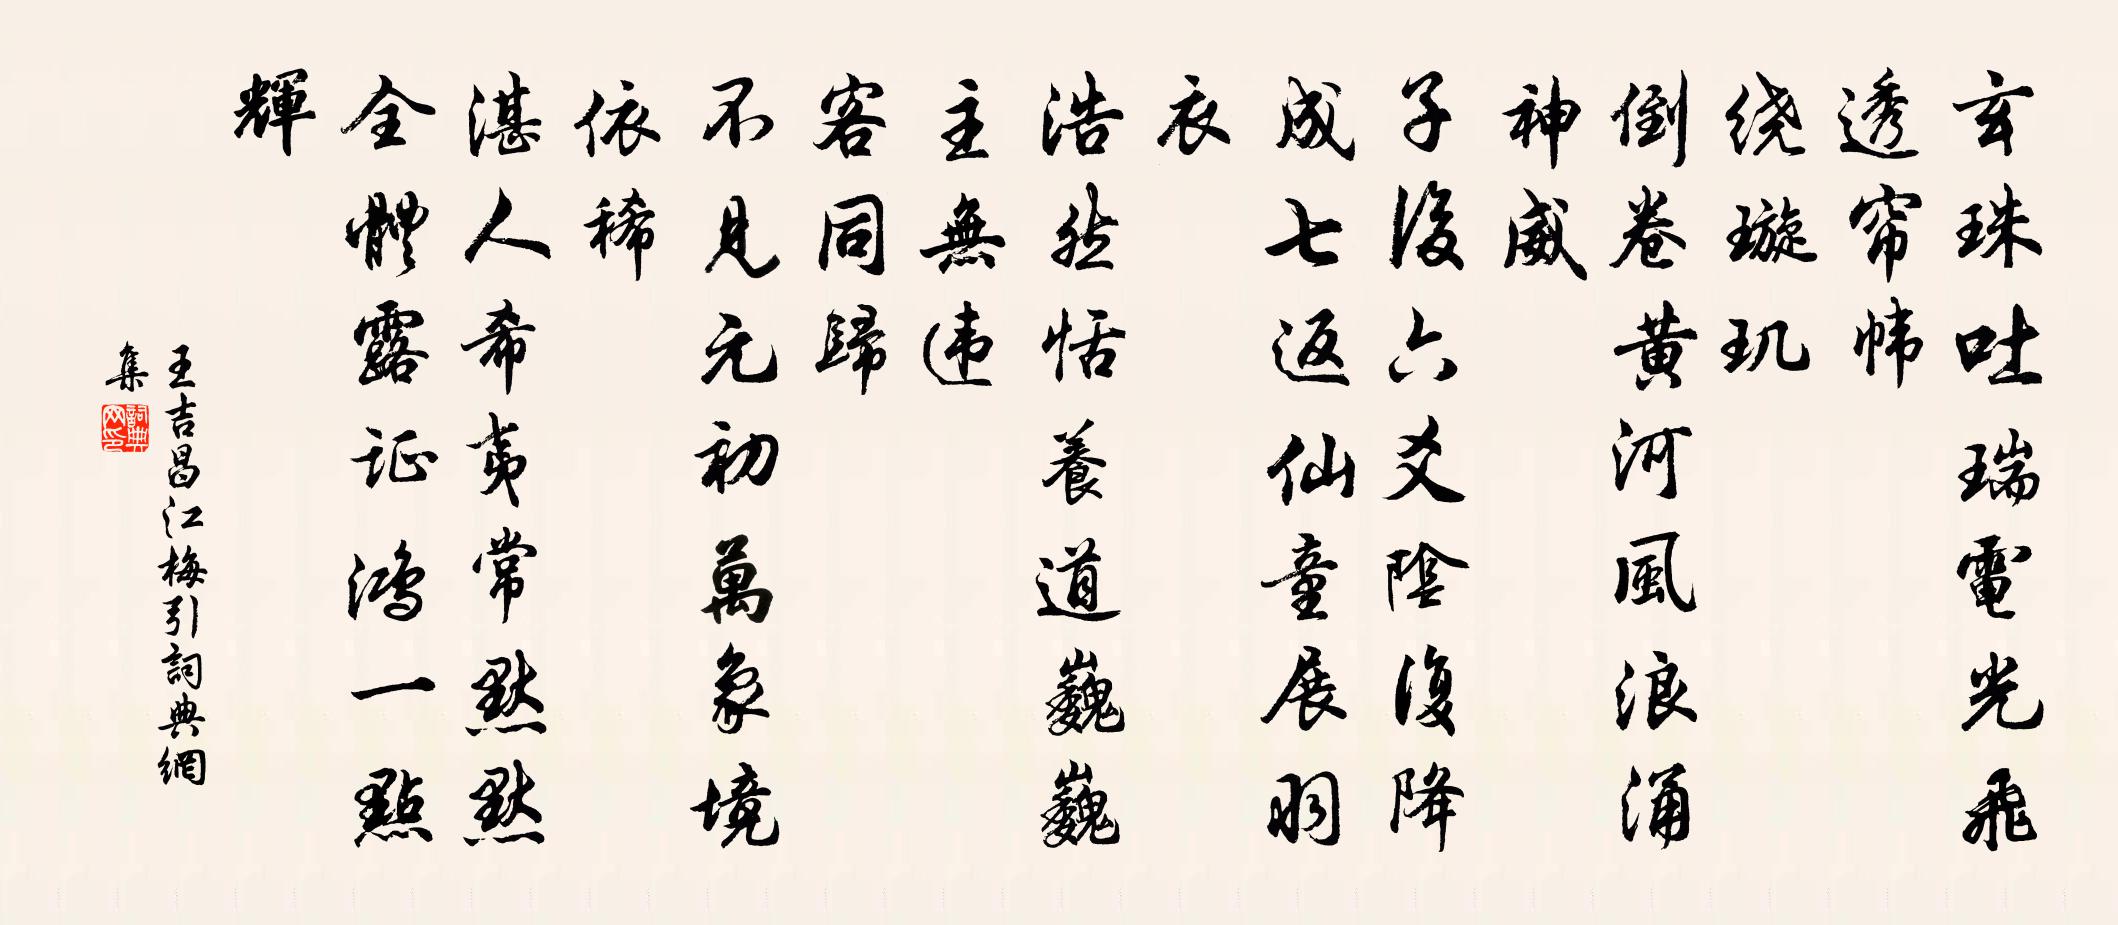 玄珠吐瑞電光飛
透帘帏
绕璇玑
倒卷黄河風浪涌
神威
子後六爻陰復降
成七返仙童展羽
衣
浩然恬養道巍巍
主無违
客同歸
不見元初萬象境
依稀
湛人希夷常默默
全體露证鸿一點
輝
王吉昌江梅引詞典網
集
詞典网印